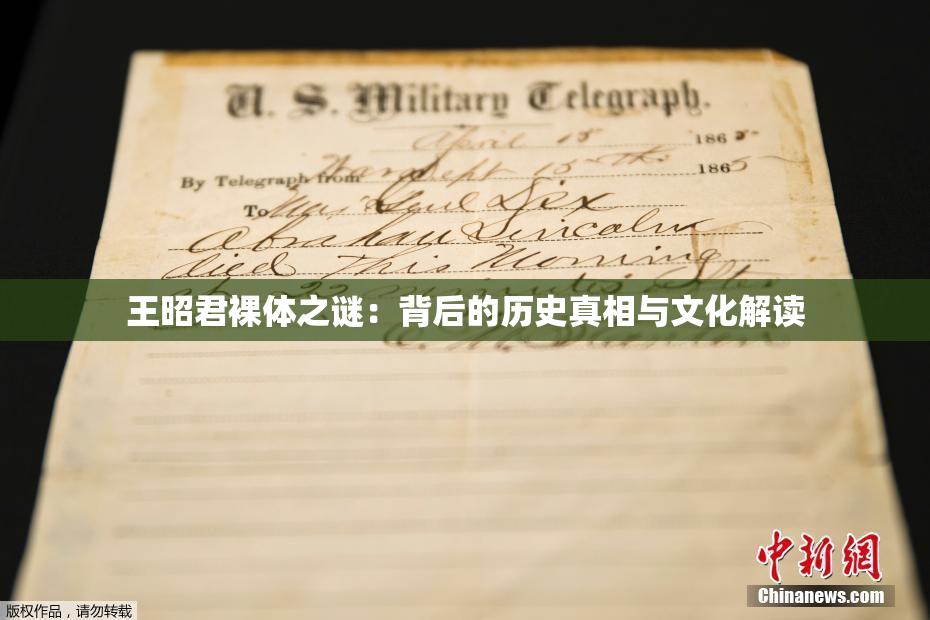 U. S. Military Telegraph.
April 15 1865
By Telegraph from War Dept 15th 1865
To Maj Genl Dix
Abraham Lincoln
died This Morning
at 22 minutes after
王昭君裸体之谜：背后的历史真相与文化解读
E. M. Stanton
中新网
Chinanews.com
版权作品，请勿转载